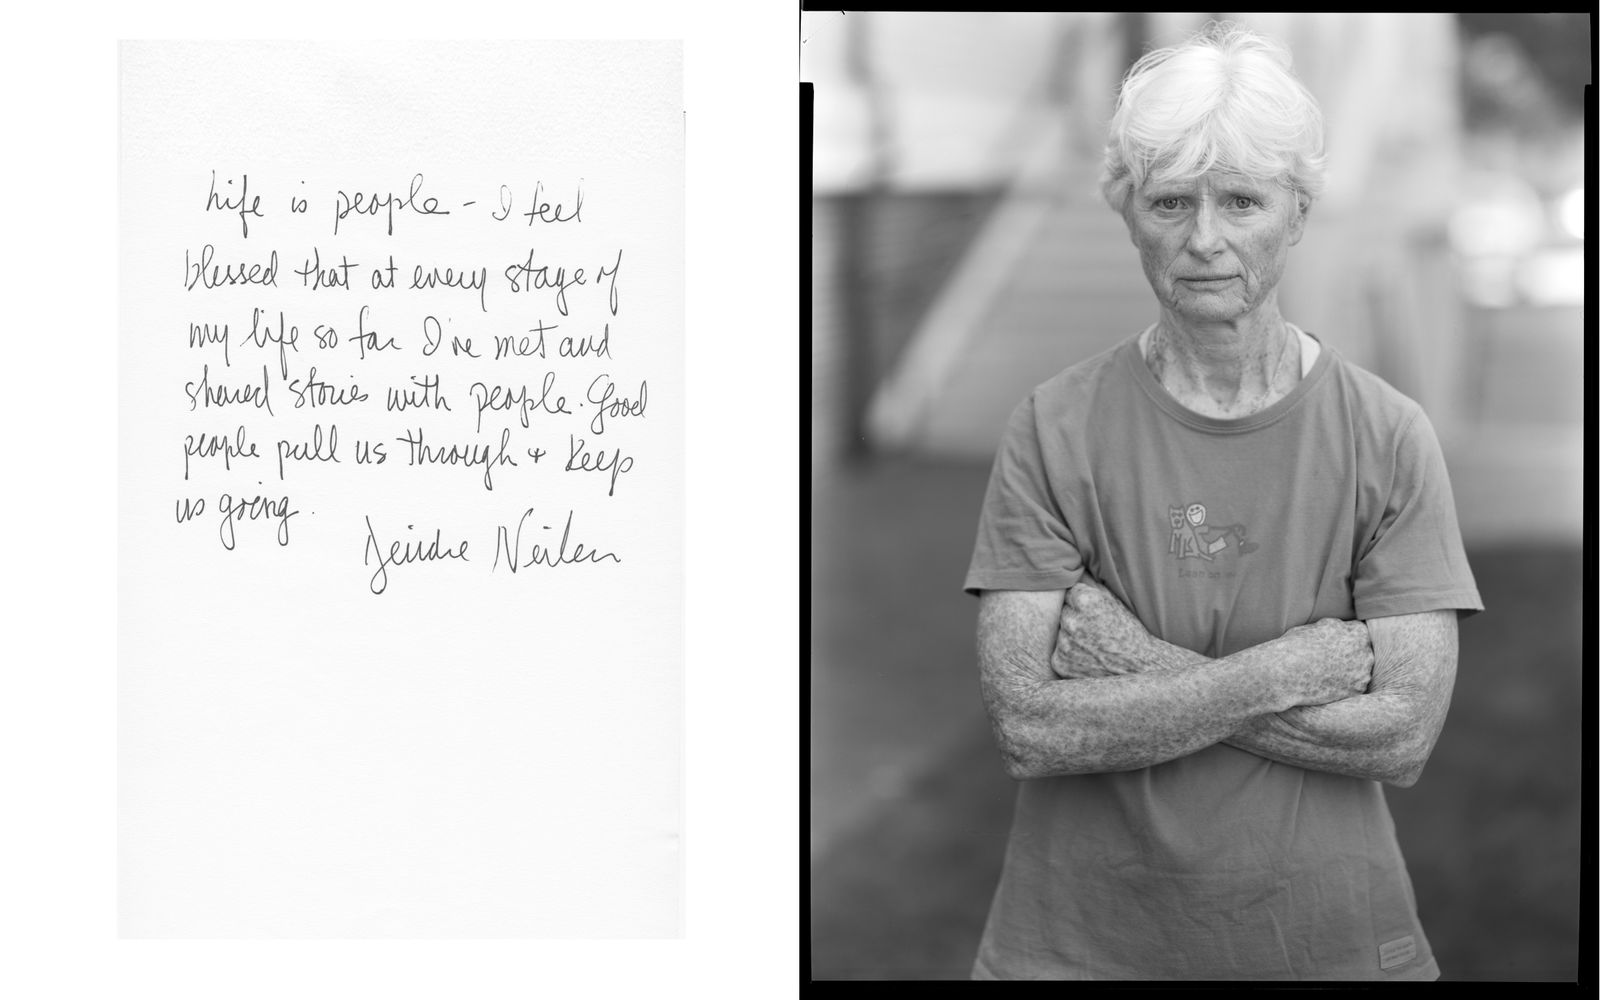 Life is people - I feel
blessed that at every stage of
my life so far I've met and
shared stories with people. Good
people pull us through + keep
us going.
Deirdre Neilen
Lean on me